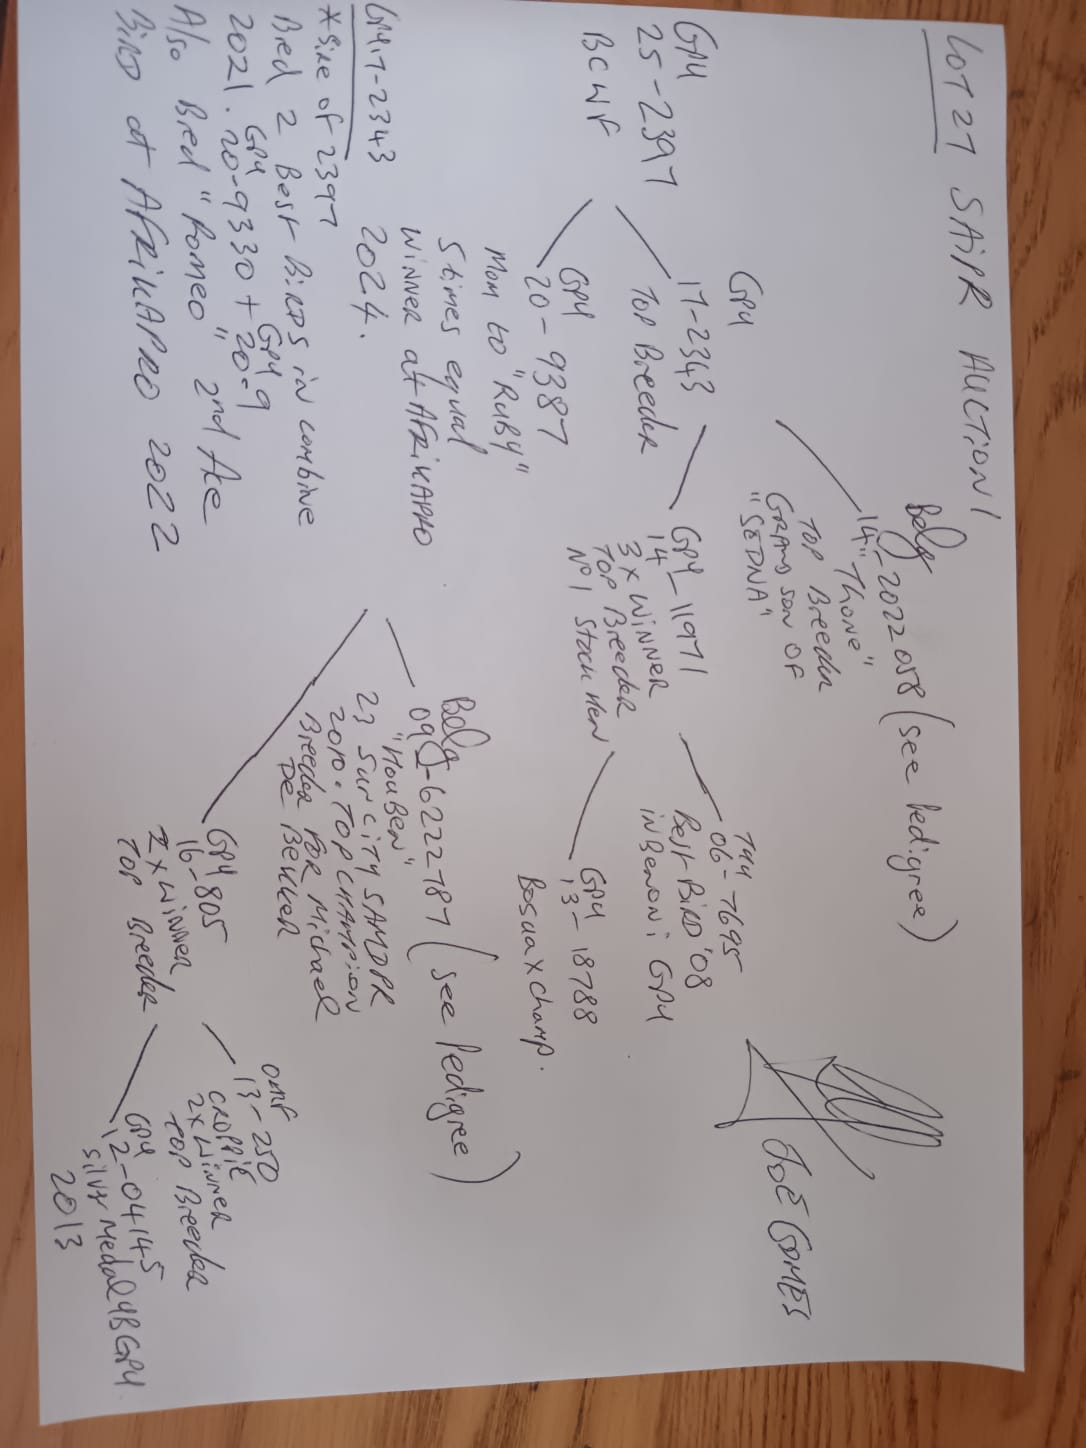 LOT 27 SAIPR AUCTION!
GPU
25-2397
BCWF
GPU
17-2343
TOP Breeder
Belg
14-2022058 (see Pedigree)
"Thone"
TOP Breeder
GRANDSON OF
"SEDNA"
GPU-11971
14
3x WINNER
TOP Breeder
No1 Stock Hen
THU
06-7695
Best BIRD '08
in Benoni GPU
GPU
13-18788
Bosua x champ.
GPU
20-9387
Mom to "RUBY"
5 times equal
WINNER at AFRIKAPRO
2024.
Belg
09-6222787 (see Pedigree)
"HOUBEN"
23 Sun CITY SAMDPR
2010. TOP CHAMPION
Breeder FOR Michael
DE BEKKER
GPU
16-805
2x WINNER
TOP Breeder
OMF
13-250
CROPPIE
2x WINNER
TOP Breeder
GPU
12-04145
Silver Medal UBGPU.
2013
GPU17-2343
*Sire of 2397
Bred 2 Best BIRDS in combine
2021. GPU 20-9330 + GPU 20-9
Also Bred "Romeo" 2nd Ace
BIRD at AFRIKAPRO 2022
JOE GOMES